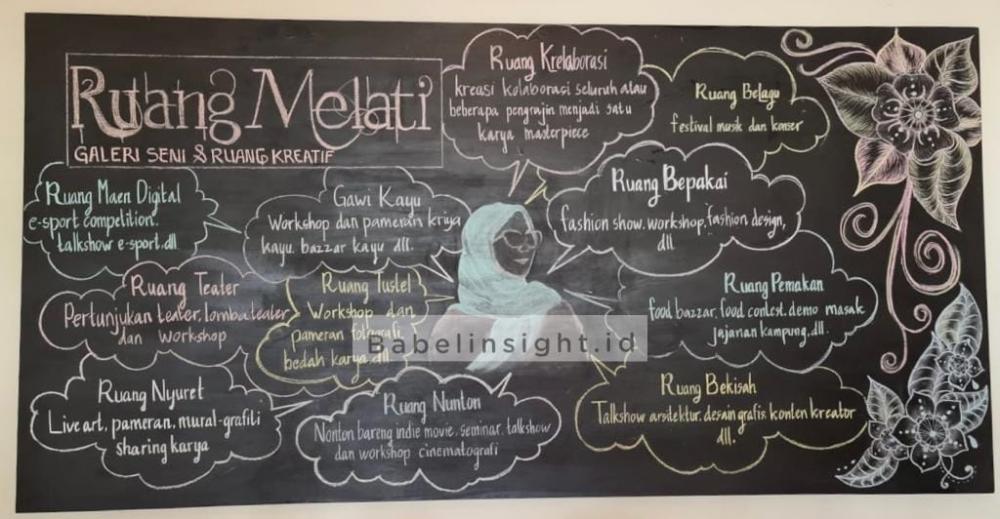 Ruang Melati
GALERI SENI & RUANG KREATIF
Ruang Krelaborasi
kreasi kolaborasi seluruh atau
beberapa pengrajin menjadi satu
karya masterpiece
Ruang Belagu
festival musik dan konser
Ruang Maen Digital
e-sport competition.
talkshow e-sport.dll
Gawi Kayu
Workshop dan pameran kriya
kayu. bazzar kayu dll.
Ruang Bepakai
fashion show. workshop, fashion design,
dll
Ruang Teater
Pertunjukan teater. lomba teater
dan Workshop
Ruang Tustel
Workshop dan
pameran fotografi
bedah karya.dll
Ruang Pemakan
food bazzar, food contest. demo masak
jajanan kampung, dll.
Babelinsight.id
Ruang Nyuret
Live art, pameran, mural-grafiti
sharing karya
Ruang Nunton
Nonton bareng indie movie. seminar. talkshow
dan workshop cinematografi
Ruang Bekisah
Talkshow arsitektur. desain grafis. konten kreator
dll.